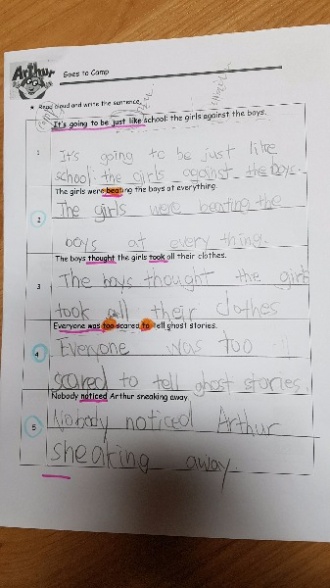 Arthur
Goes to Camp
Read aloud and write the sentence.
It's going to be just like school: the girls against the boys.
1
It's going to be just like
school: the girls against the boys.
The girls were beating the boys at everything.
2
The girls were beating the
boys at every thing.
The boys thought the girls took all their clothes.
3
The boys thought the girls
took all their clothes
Everyone was too scared to tell ghost stories.
4
Everyone was too
scared to tell ghost stories.
Nobody noticed Arthur sneaking away.
5
Nobody noticed Arthur
sneaking away.